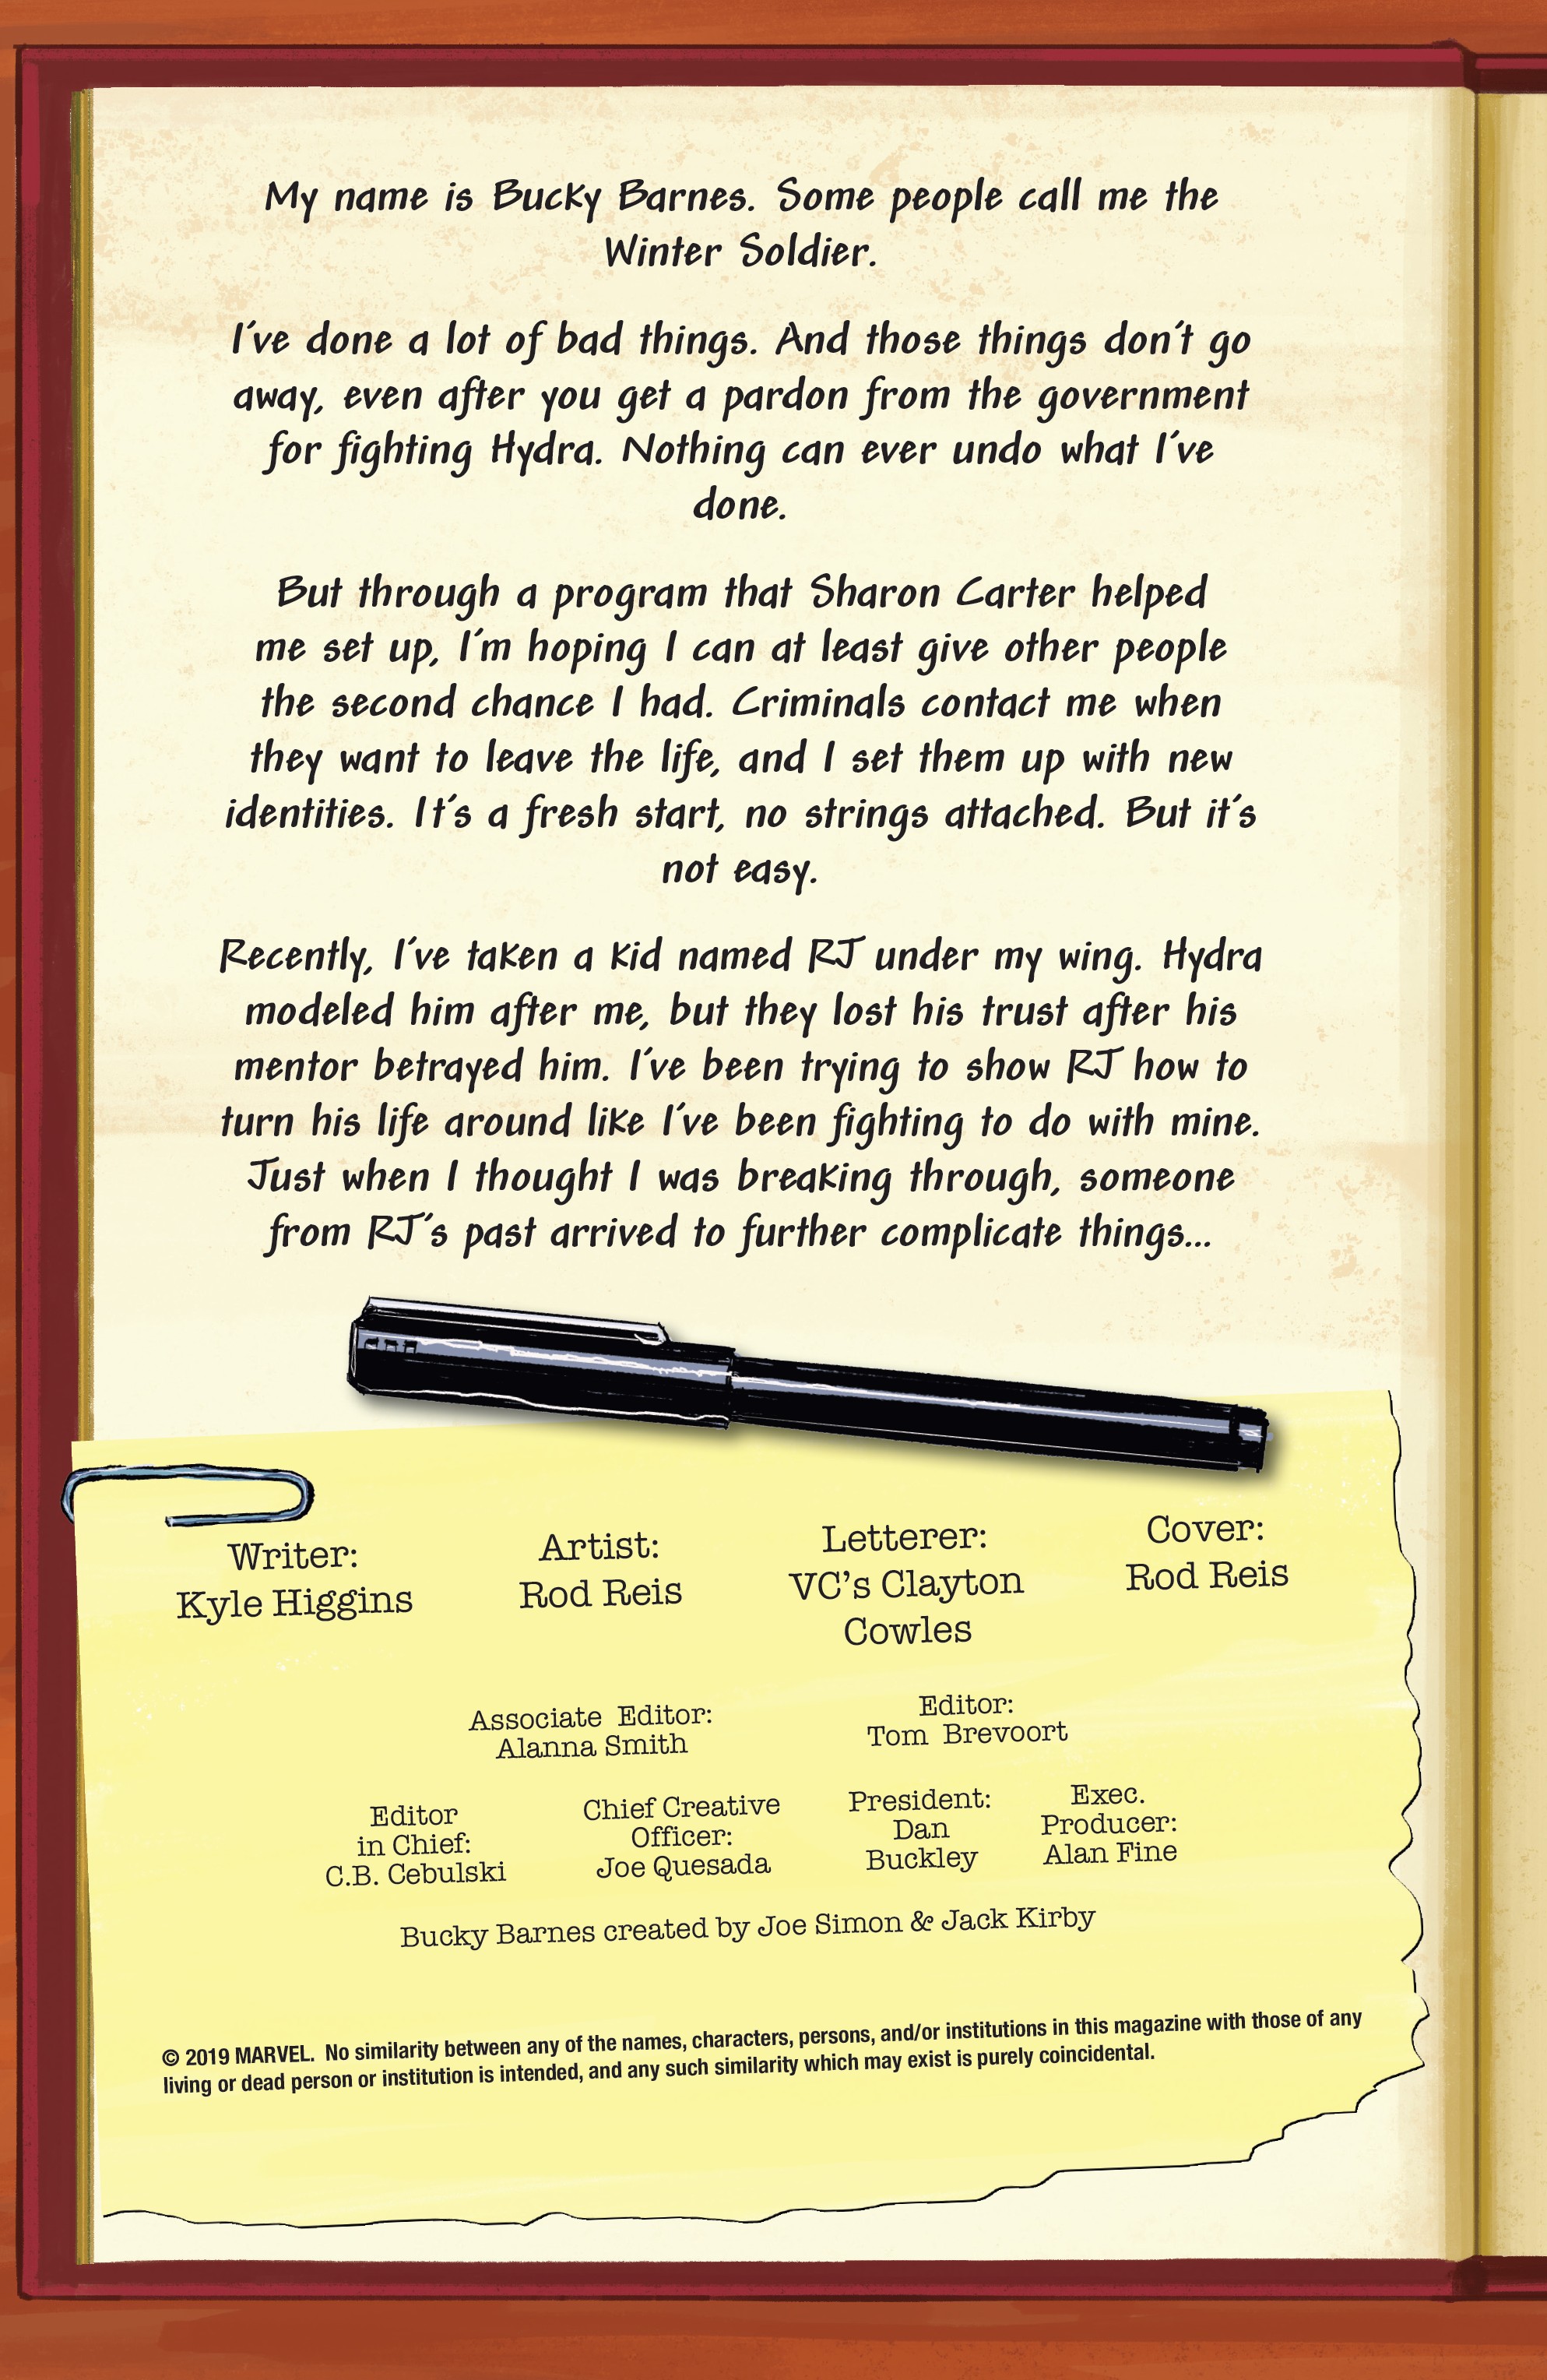 My name is Bucky Barnes. Some people call me the
Winter Soldier.
I've done a lot of bad things. And those things don't go
away, even after you get a pardon from the government
for fighting Hydra. Nothing can ever undo what I've
done.
But through a program that Sharon Carter helped
me set up, I'm hoping I can at least give other people
the second chance I had. Criminals contact me when
they want to leave the life, and I set them up with new
identities. It's a fresh start, no strings attached. But it's
not easy.
Recently, I've taken a kid named RJ under my wing. Hydra
modeled him after me, but they lost his trust after his
mentor betrayed him. I've been trying to show RJ how to
turn his life around like I've been fighting to do with mine.
Just when I thought I was breaking through, someone
from RJ's past arrived to further complicate things...
Writer:
Kyle Higgins
Artist:
Rod Reis
Letterer:
VC's Clayton
Cowles
Cover:
Rod Reis
Associate Editor:
Alanna Smith
Editor:
Tom Brevoort
Editor
in Chief:
C.B. Cebulski
Chief Creative
Officer:
Joe Quesada
President:
Dan
Buckley
Exec.
Producer:
Alan Fine
Bucky Barnes created by Joe Simon & Jack Kirby
© 2019 MARVEL. No similarity between any of the names, characters, persons, and/or institutions in this magazine with those of any
living or dead person or institution is intended, and any such similarity which may exist is purely coincidental.